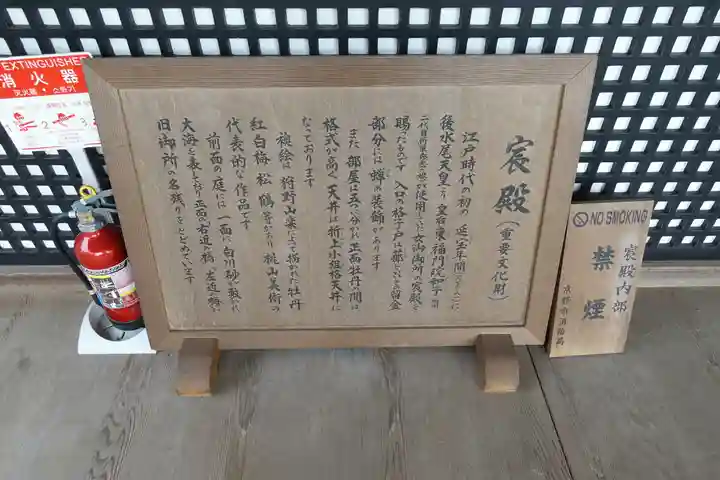 宸殿
(重要文化財)
江戸時代の初め 延宝年間
後水尾天皇より 皇后東福門院和子
が使用していた女御御所の宸殿を
賜ったものです 入口の格子戸は蔀といい 留金
部分には 蝉の装飾があります
また 部屋は五つに分かれ 正面牡丹の間は
格式が高く 天井は折上小組格天井に
なっております
襖絵は 狩野山楽によって描かれた牡丹
紅白梅 松 鶴等があり 桃山美術の
代表的な作品です
前面の庭には 一面に白川砂が敷かれ
大海を表しており 正面の右近の橘 左近の梅が
旧御所の名残りをとどめています
NO SMOKING
宸殿内部
禁煙
京都市消防局
EXTINGUISHER
消火器
灭火器・소화기
1
2
3